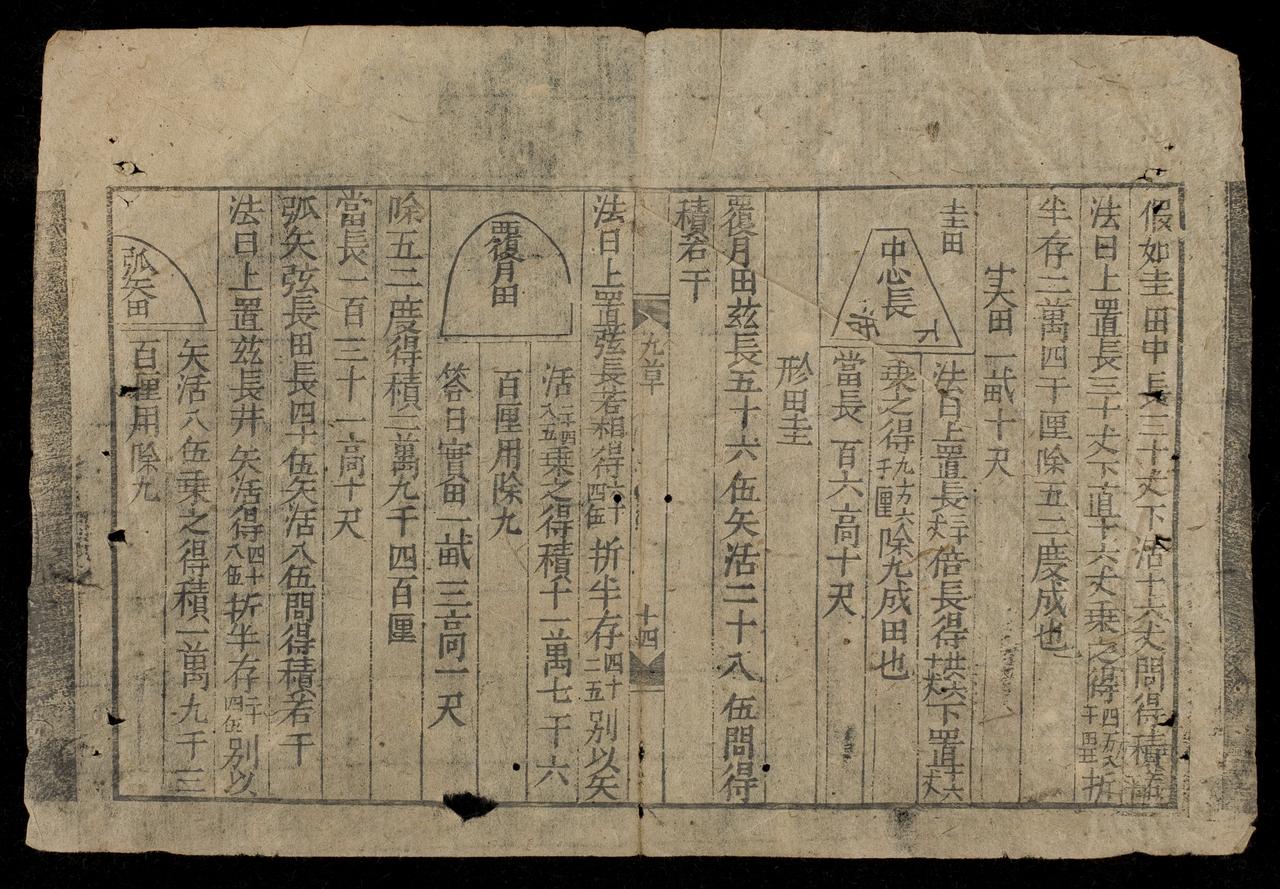 假如圭田中長三十丈下活十六丈問得積
法曰上置長三十丈下直十六丈乗之得四万八千四丑折
半存二萬四千厘除五二度成也
実田一畝十尺
圭田
中心長
法曰上置長三十丈倍長得共六十丈下置十六丈
乗之得九万六千厘除九成田也
當長一百六高十尺
形田圭
覆月田茲長五十六伍矢活二十八伍問得
積若干
九草
十四
法曰上置弦長若相得六十四伍折半存四十二五别以矢
活二十四八五乗之得積十一萬七千六
百厘用除九
覆月田
答曰實田一畝三高一尺
除五二度得積二萬九千四百厘
當長一百三十一高十尺
弧矢弦長田長四十伍矢活八伍問得積若干
法曰上置茲長井矢活得四十八伍折半存二十四伍别以
矢活八伍乗之得積一萬九千三
百厘用除九
弧矢田